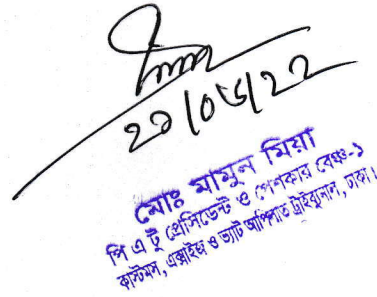 ২১/০৬/২২
মোঃ মামুন মিয়া
পি এ টু প্রেসিডেন্ট ও পেশকার বেঞ্চ-১
কাস্টমস, এক্সাইজ ও ভ্যাট আপিলাত ট্রাইব্যুনাল, ঢাকা।